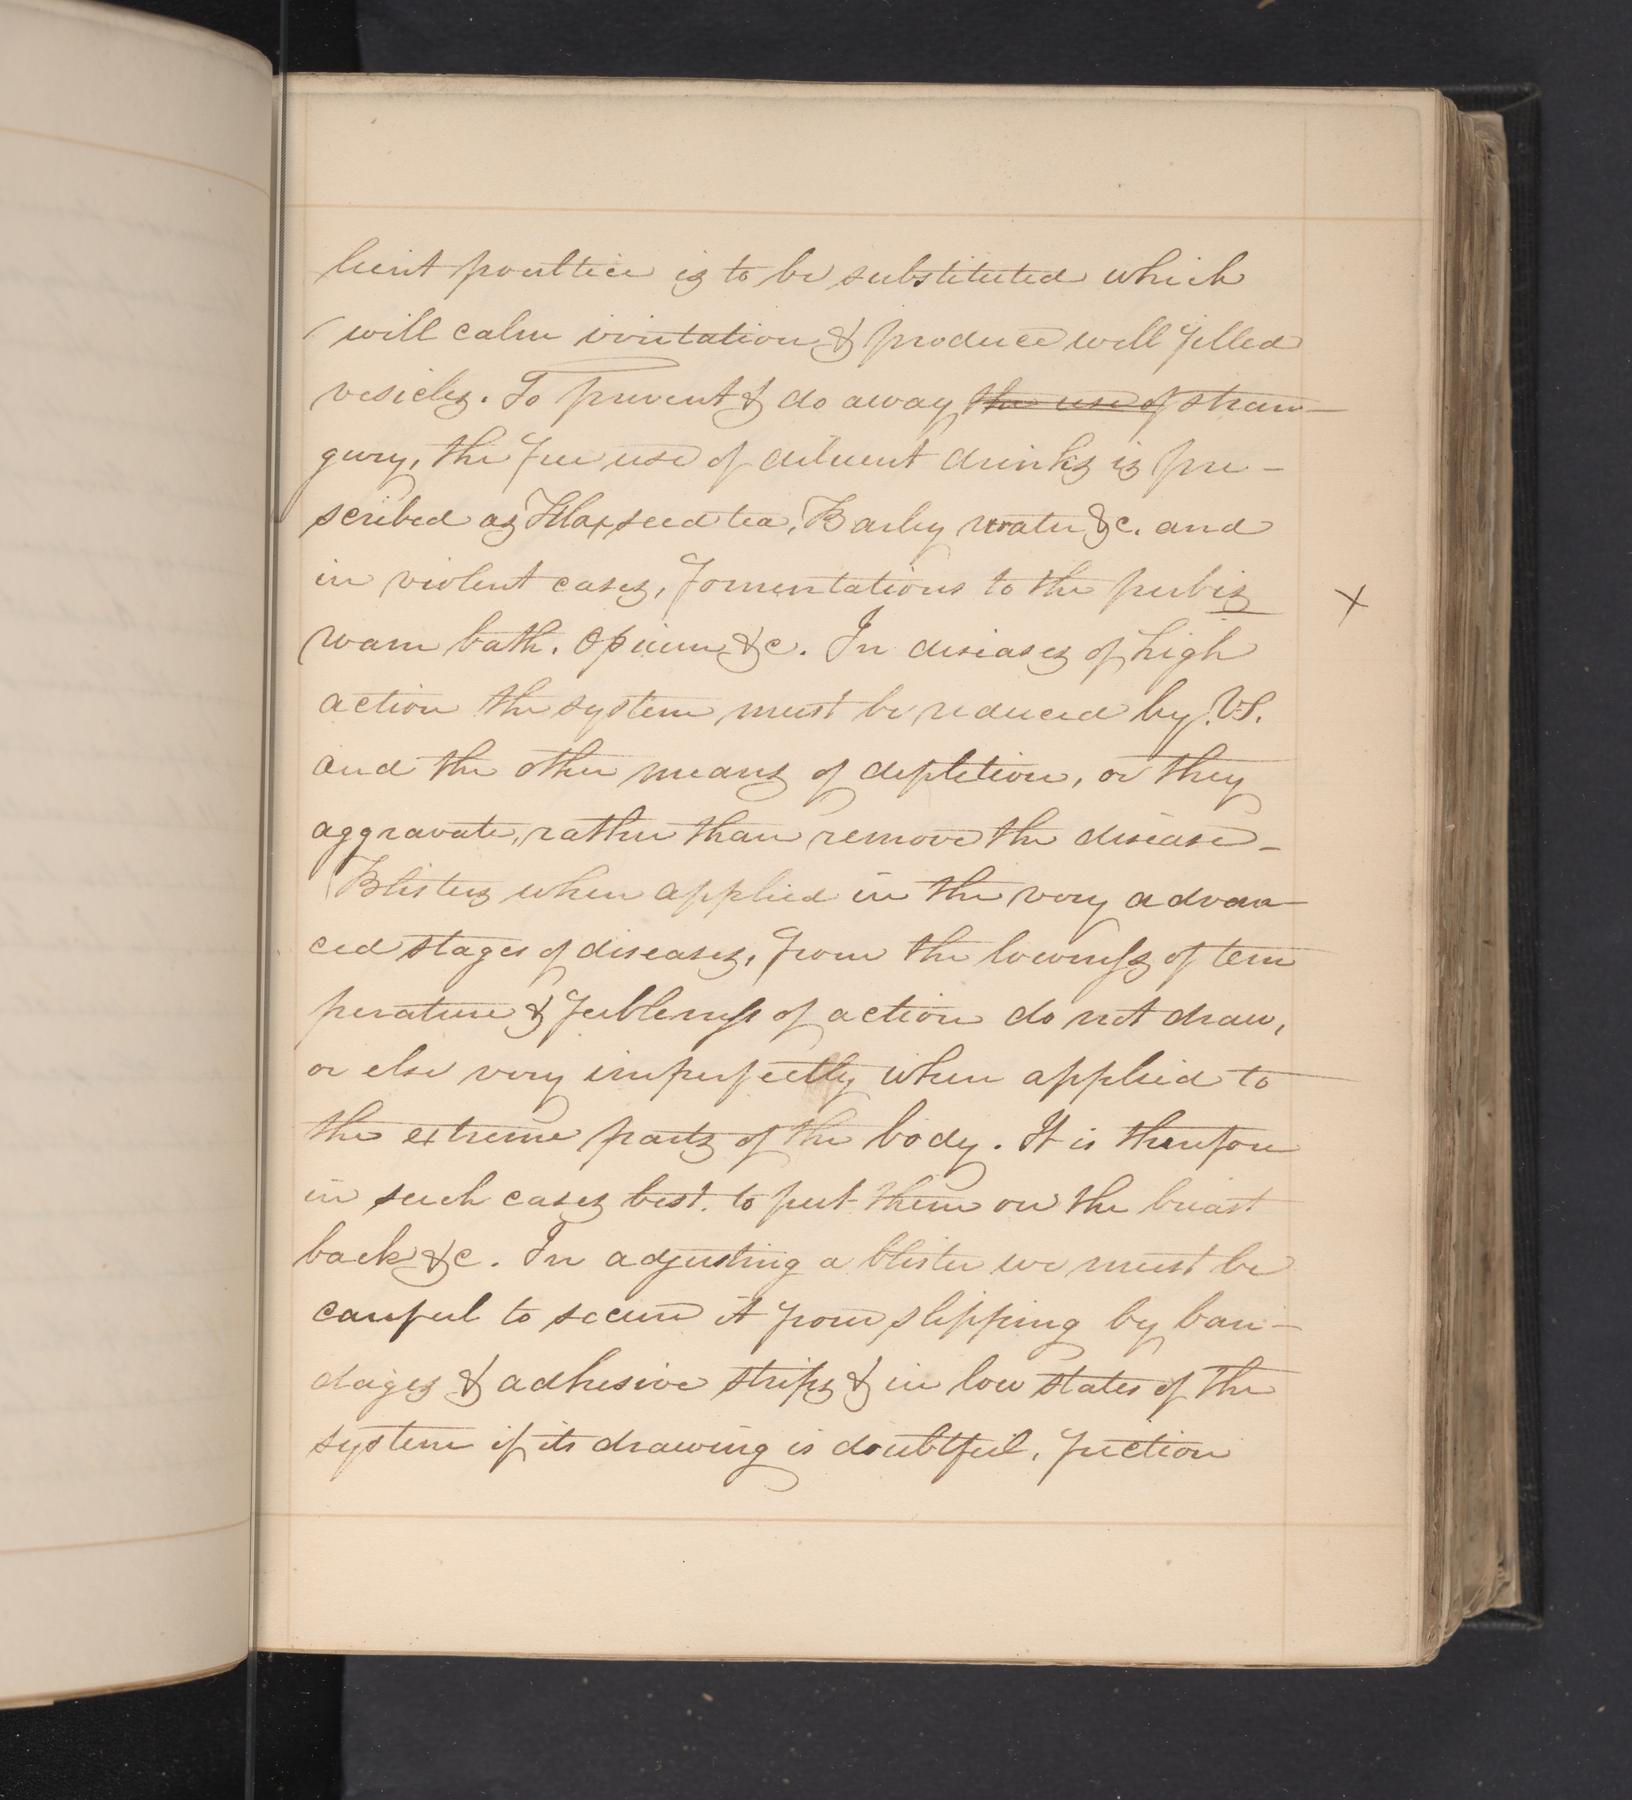 lient poultice is to be substituted which
will calm irritation & produce well filled
vesicles. To prevent & do away the use of stran-
gury, the free use of diluent drinks is pre-
scribed as Flaxseed tea, Barley water &c. and
in violent cases, fomentations to the pubis
warm bath, opium &c. In diseases of high
action the system must be reduced by V.S.
and the other means of depletion, or they
aggravate, rather than remove the disease-
Blisters when applied in the very advan-
ced stages of diseases, from the lowness of tem
perature & feebleness of action do not draw,
or else very imperfectly when applied to
the extreme parts of the body. It is therefore
in such cases best to put them on the breast
back &c. In adjusting a blister we must be
careful to secure it from slipping by ban-
dages & adhesive strips & in low states of the
system if its drawing is doubtful, friction
x